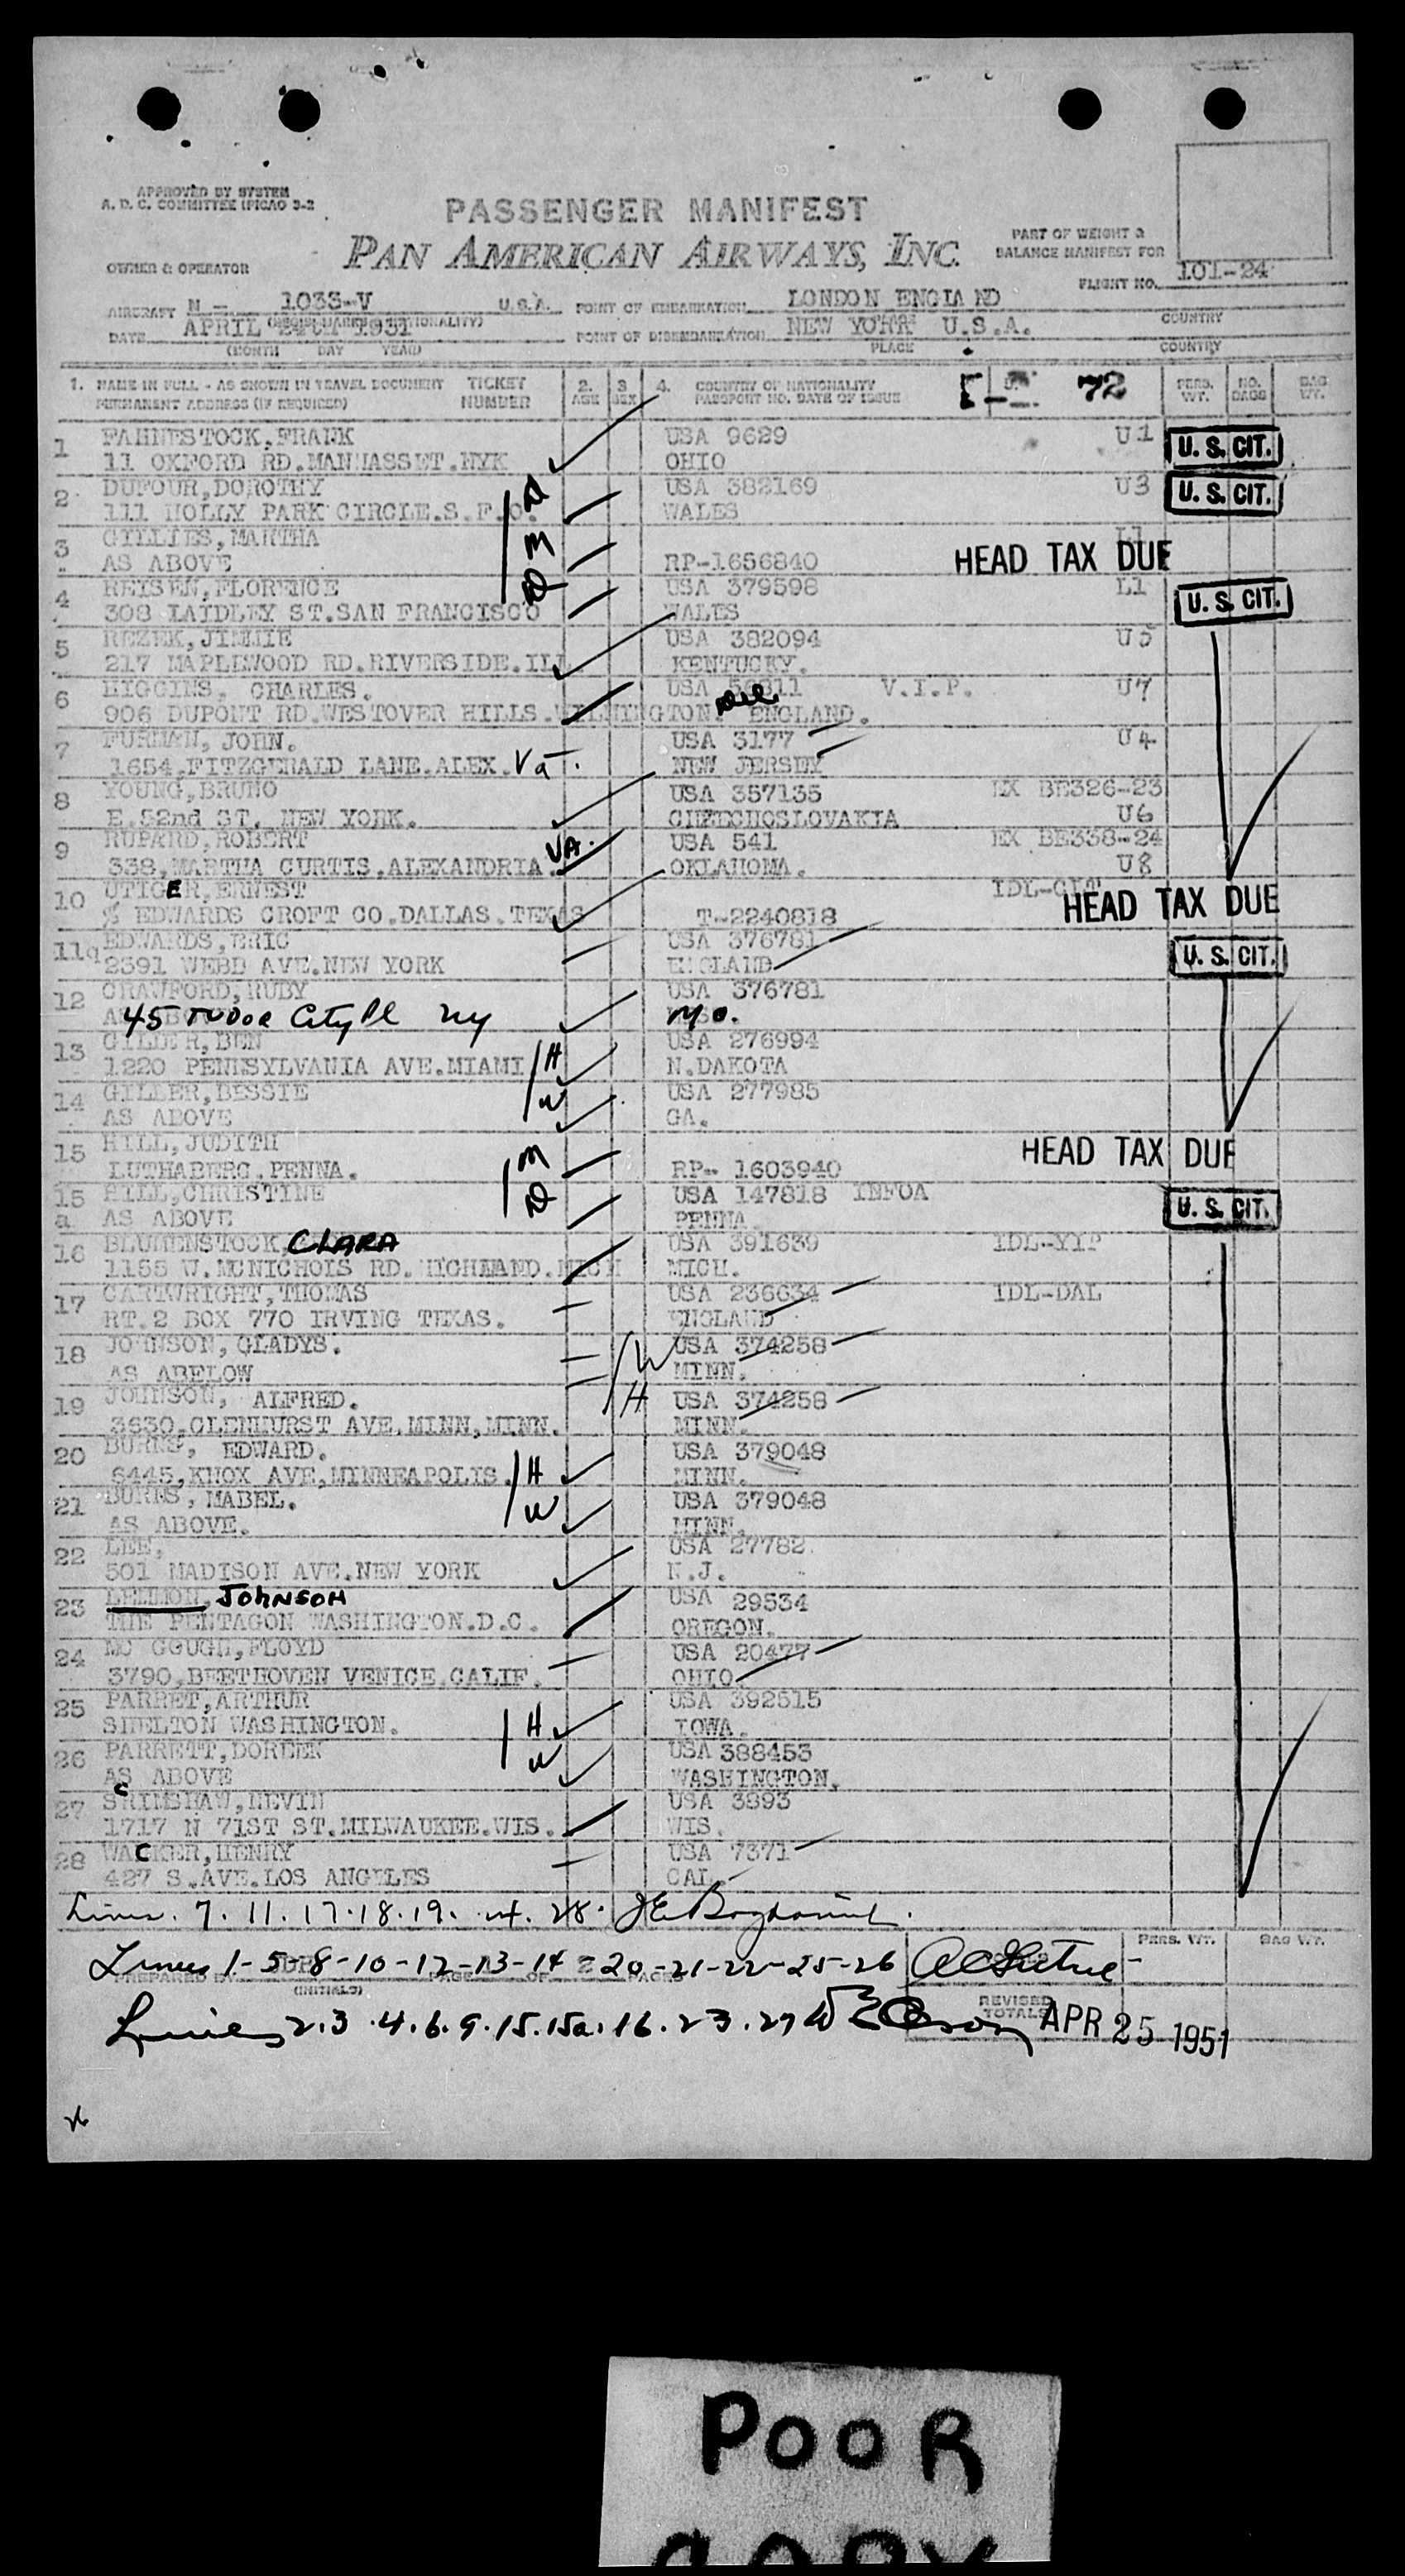 APPROVED BY SYSTEM
A. D. C. COMMITTEE (PICAO 3-2
PASSENGER MANIFEST
PAN AMERICAN AIRWAYS, INC.
OWNER & OPERATOR
PART OF WEIGHT &
BALANCE MANIFEST FOR
FLIGHT NO. 101-24
AIRCRAFT N - 1038-V U.S.A. POINT OF EMBARKATION LONDON ENGLAND
DATE APRIL 1951 POINT OF DISEMBARKATION NEW YORK U.S.A.
COUNTRY
(MONTH DAY YEAR) PLACE COUNTRY
1. NAME IN FULL - AS SHOWN IN TRAVEL DOCUMENT TICKET 2. 3 4. COUNTRY OF NATIONALITY 72 PERS. NO. BAG
PERMANENT ADDRESS (IF REQUIRED) NUMBER AGE SEX PASSPORT NO. DATE OF ISSUE WT. BAGS WT.
1 FAHNESTOCK, FRANK USA 9629 U1 U. S. CIT.
11 OXFORD RD. MANHASSET. NYK OHIO
2 DUFOUR, DOROTHY D USA 382169 U3 U. S. CIT.
111 HOLLY PARK CIRCLE. S. F. C. WALES
3 GILLIES, MARTHA M L1
AS ABOVE RP-1656840 HEAD TAX DUE
4 REISEN, FLORENCE D USA 379598 L1 U. S. CIT.
308 LAIDLEY ST. SAN FRANCISCO WALES
5 REZEK, JIMMIE USA 382094 U5
217 MAPLEWOOD RD. RIVERSIDE. ILL KENTUCKY.
6 HIGGINS, CHARLES. USA V.I.P. U7
906 DUPONT RD. WESTOVER HILLS. WILMINGTON. Del ENGLAND.
7 FURMAN, JOHN. USA 3177 U4
1654, FITZGERALD LANE. ALEX. Va. NEW JERSEY
8 YOUNG, BRUNO USA 357135 EX BE326-23
E. 52nd ST. NEW YORK. CHZECHOSLOVAKIA U6
9 RUPARD, ROBERT USA 541 EX BE338-24
338, MARTHA CURTIS, ALEXANDRIA. VA. OKLAHOMA. U8
10 UTIGER, ERNEST IDL-
% EDWARDS CROFT CO. DALLAS. TEXAS T-2240818 HEAD TAX DUE
11q EDWARDS, ERIC USA 376781 U. S. CIT.
2391 WEBB AVE. NEW YORK ENGLAND
12 CRAWFORD, RUBY USA 376781
45 TUDOR City Pl NY Mo.
13 GILLER, BEN H USA 276994
1220 PENNSYLVANIA AVE. MIAMI N. DAKOTA
14 GILLER, BESSIE W USA 277985
AS ABOVE GA.
15 HILL, JUDITH M HEAD TAX DUE
LUTHABERG. PENNA. RP- 1603940
15 HILL, CHRISTINE D USA 147818 INFOA U. S. CIT.
a AS ABOVE PENNA.
16 BLUMENSTOCK, CLARA USA 391639 IDL-YIP
1155 W. MCNICHOLS RD. MICH MICH.
17 CARTWRIGHT, THOMAS USA 236634 IDL-DAL
RT. 2 BOX 770 IRVING TEXAS. ENGLAND
18 JOHNSON, GLADYS. W USA 374258
AS ABELOW MINN.
19 JOHNSON, ALFRED. H USA 374258
3630, GLENHURST AVE. MINN, MINN. MINN.
20 BURNS, EDWARD. H USA 379048
6445, KNOX AVE, MINNEAPOLIS. MINN.
21 BURNS, MABEL. W USA 379048
AS ABOVE. MINN.
22 LEE, USA 27782
501 MADISON AVE. NEW YORK N.J.
23 LEMMON, JOHNSON USA 29534
THE PENTAGON WASHINGTON. D.C. OREGON.
24 MC GOUGH, FLOYD USA 20477
3790, BEETHOVEN VENICE. CALIF. OHIO
25 PARRET, ARTHUR H USA 392515
SHELTON WASHINGTON. IOWA.
26 PARRETT, DOREEN W USA 388453
AS ABOVE WASHINGTON.
27 SCRIMSHAW, NEVIN USA 3893
1717 N 71ST ST. MILWAUKEE. WIS. WIS.
28 WACKER, HENRY USA 7371
427 S. AVE. LOS ANGELES CAL.
Lines. 7. 11. 17. 18. 19. 24. 28.
PERS. WT. BAG WT.
Lines 1-5-8-10-12-13-14 20-21-22-25-26
PREPARED BY PAGE OF PAGES
(INITIALS)
REVISED
TOTALS
Lines 2.3.4.6.9.15.15a.16.23.27 APR 25 1951
POOR
COPY